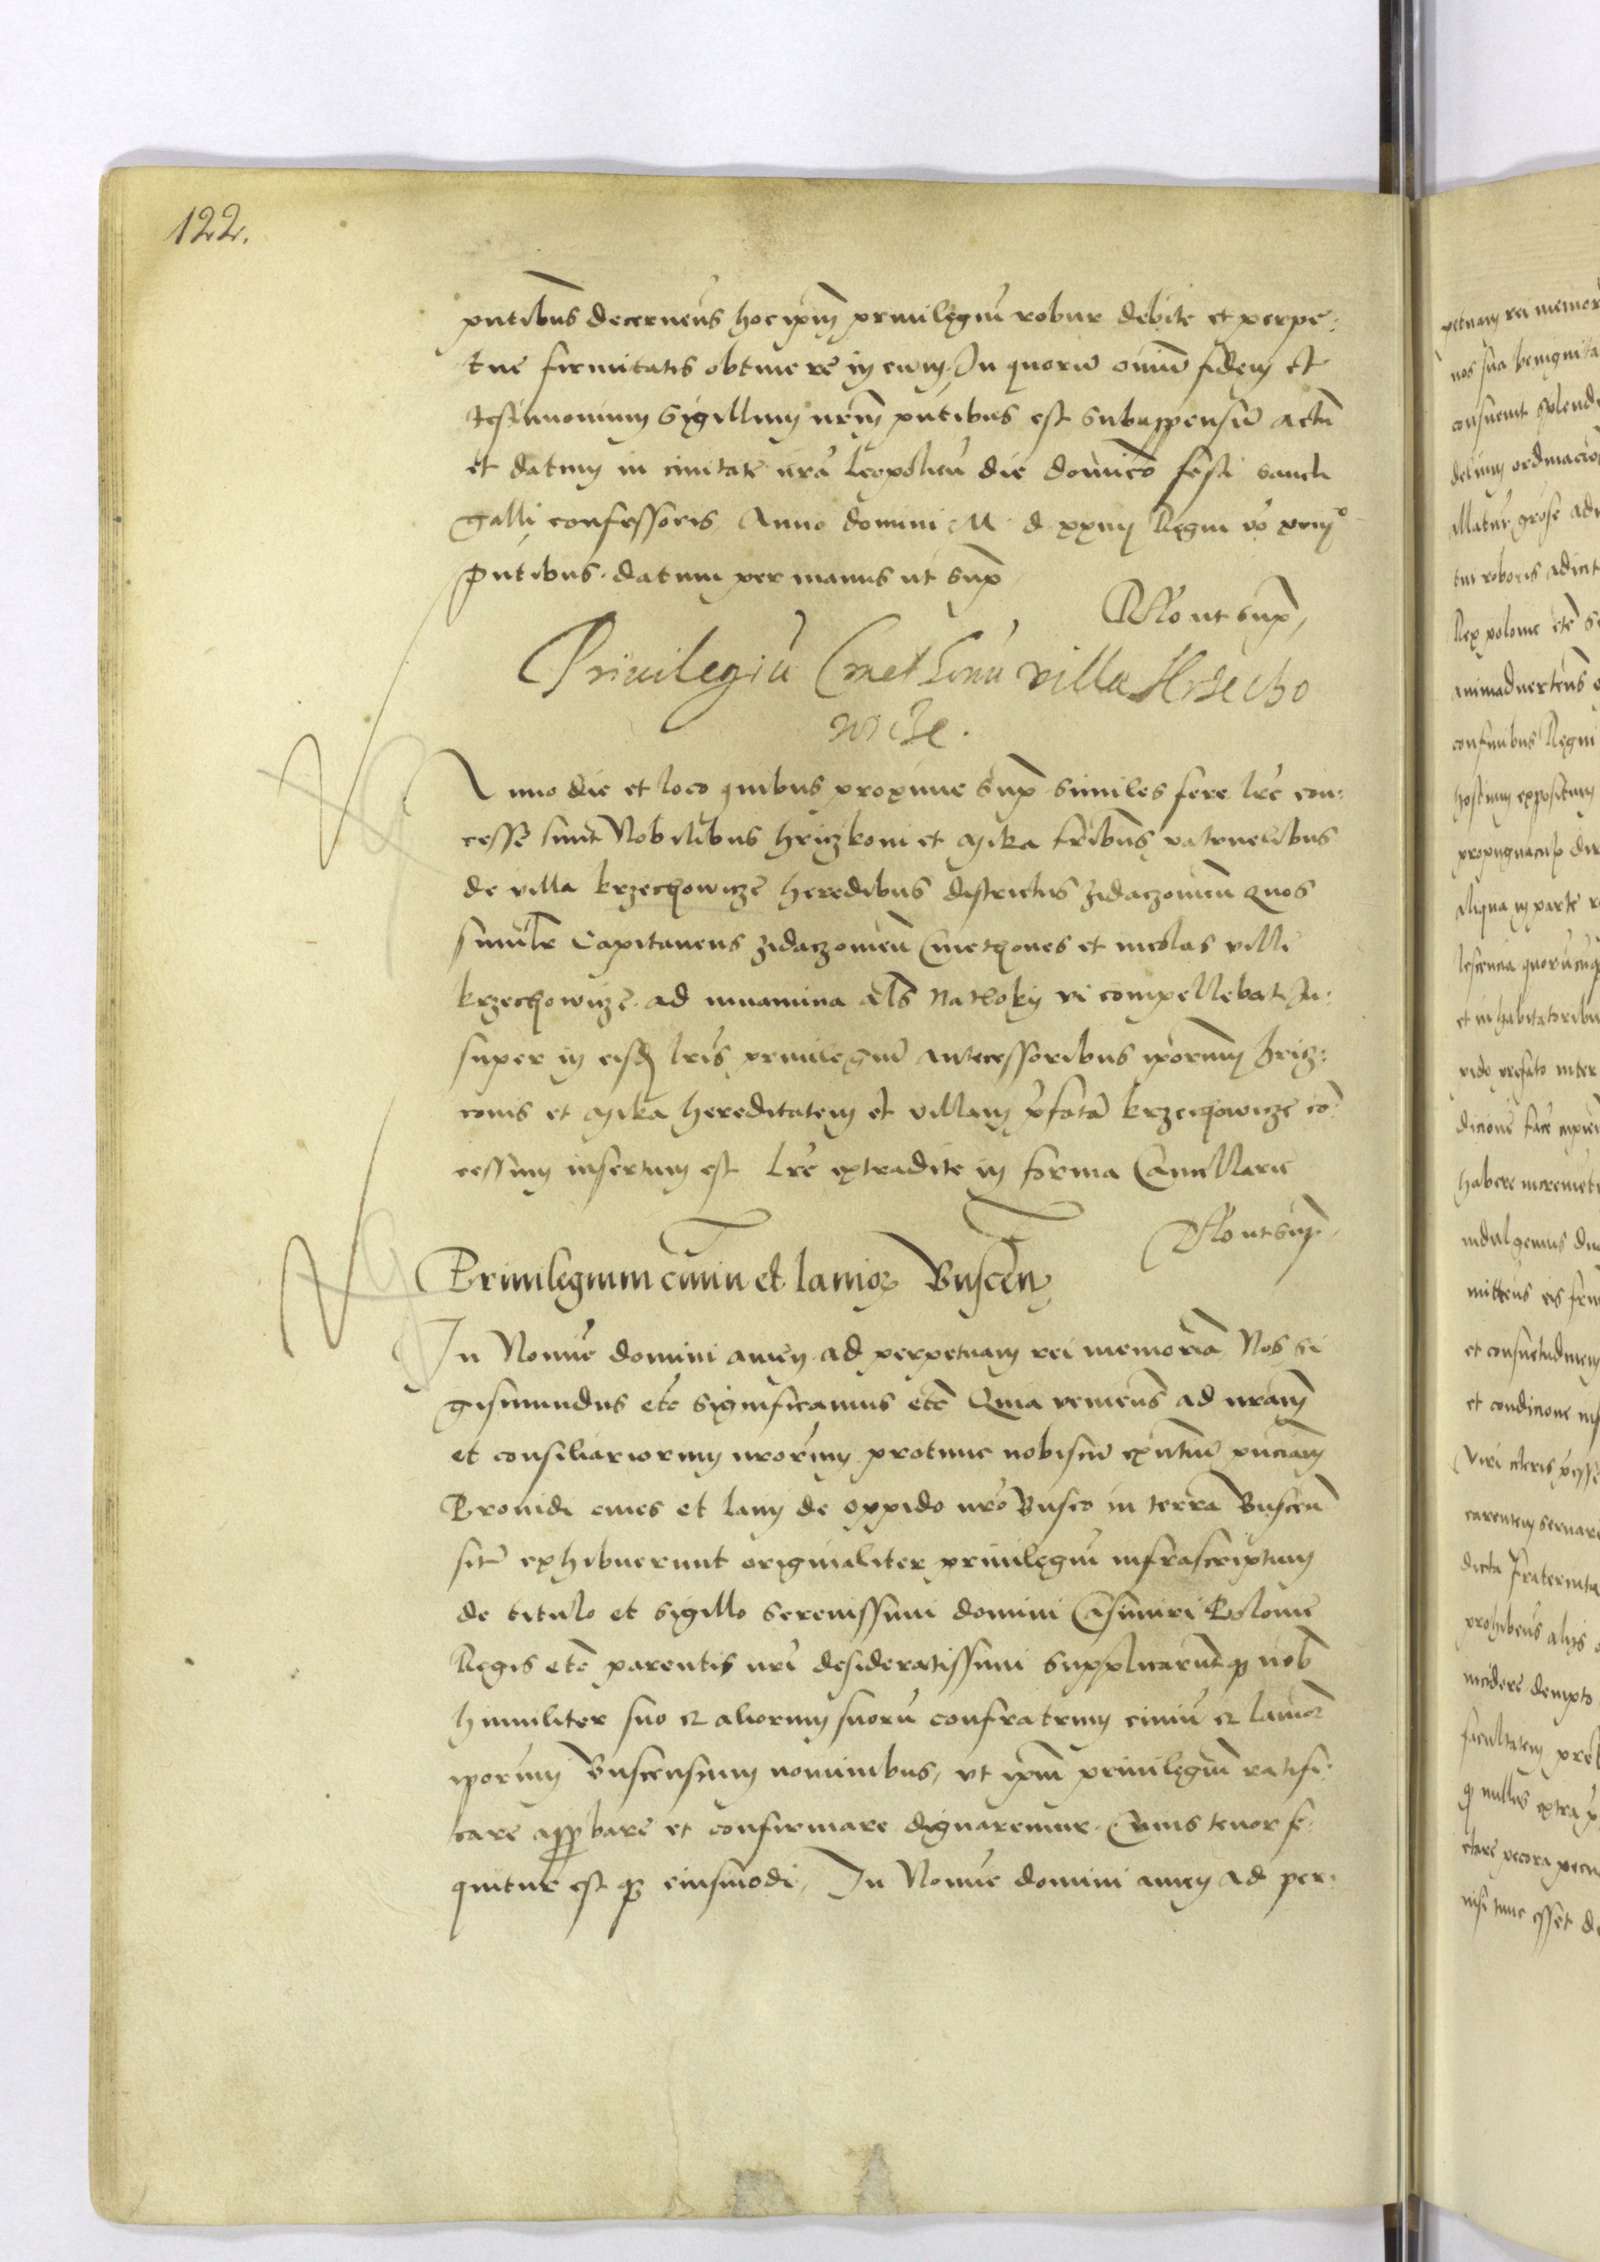 122.
pntibus decernens hoc ipm priuilegiu robur debite et perpe:
tue firmitatis obtinere in euum. In quoru omiu fidem et
testimonium Sigillum nrm pntibus est subappensu actu
et datum in ciuitate nra leopolien die dominico festi sancti
galli confessoris Anno domini M d xxiiij Regni vo xviij°
pntibus. datum per manus ut supra
Rello ut supra
Priuilegiu Cmethonu villae Krzecho
wicze.
Anno die et loco quibus proxime supra similes fere lre con:
cesse sunt Nobilibus hriczkoni et Mika fribus patruelibus
de villa krzechowicze heredibus districtus zidaczowien quos
similr Capitaneus zidaczowien Cmethones et incolas ville
krzechowicze ad iuuamina als Na tloky vi compellebat In:
super in eisd lris priuilegiu antecessoribus ipsorum hricz:
conis et Mika hereditatem et villam pfata krzechowicze co:
cessum insertum est lre extradite in forma Cancellarie
Rello ut supra
Priuilegium ciuiu et lanior Buscen
In Nomie domini amen ad perpetuam rei memoria Nos si
gismundus etc significamus etc Quia veniens ad nram
et consiliariorum nrorum protunc nobiscu existntiu pnciam
Prouidi ciues et lanij de oppido nro Busco in terra Buscen
sit exhibuerunt originaliter priuilegiu infrascriptum
de titulo et sigillo serenissimi domini Casimiri Polonie
Regis etc parentis nri desideratissimi supplicarutq nob
humiliter suo et aliorum suoru confratrum ciuiu et lanior
ipsorum Buscensium nominibus, vt ipm priuilegiu ratifi:
care approbare et confirmare dignaremur. Cuius tenor se:
quitur est q eiusmodi, In Nomie domini amen ad per: